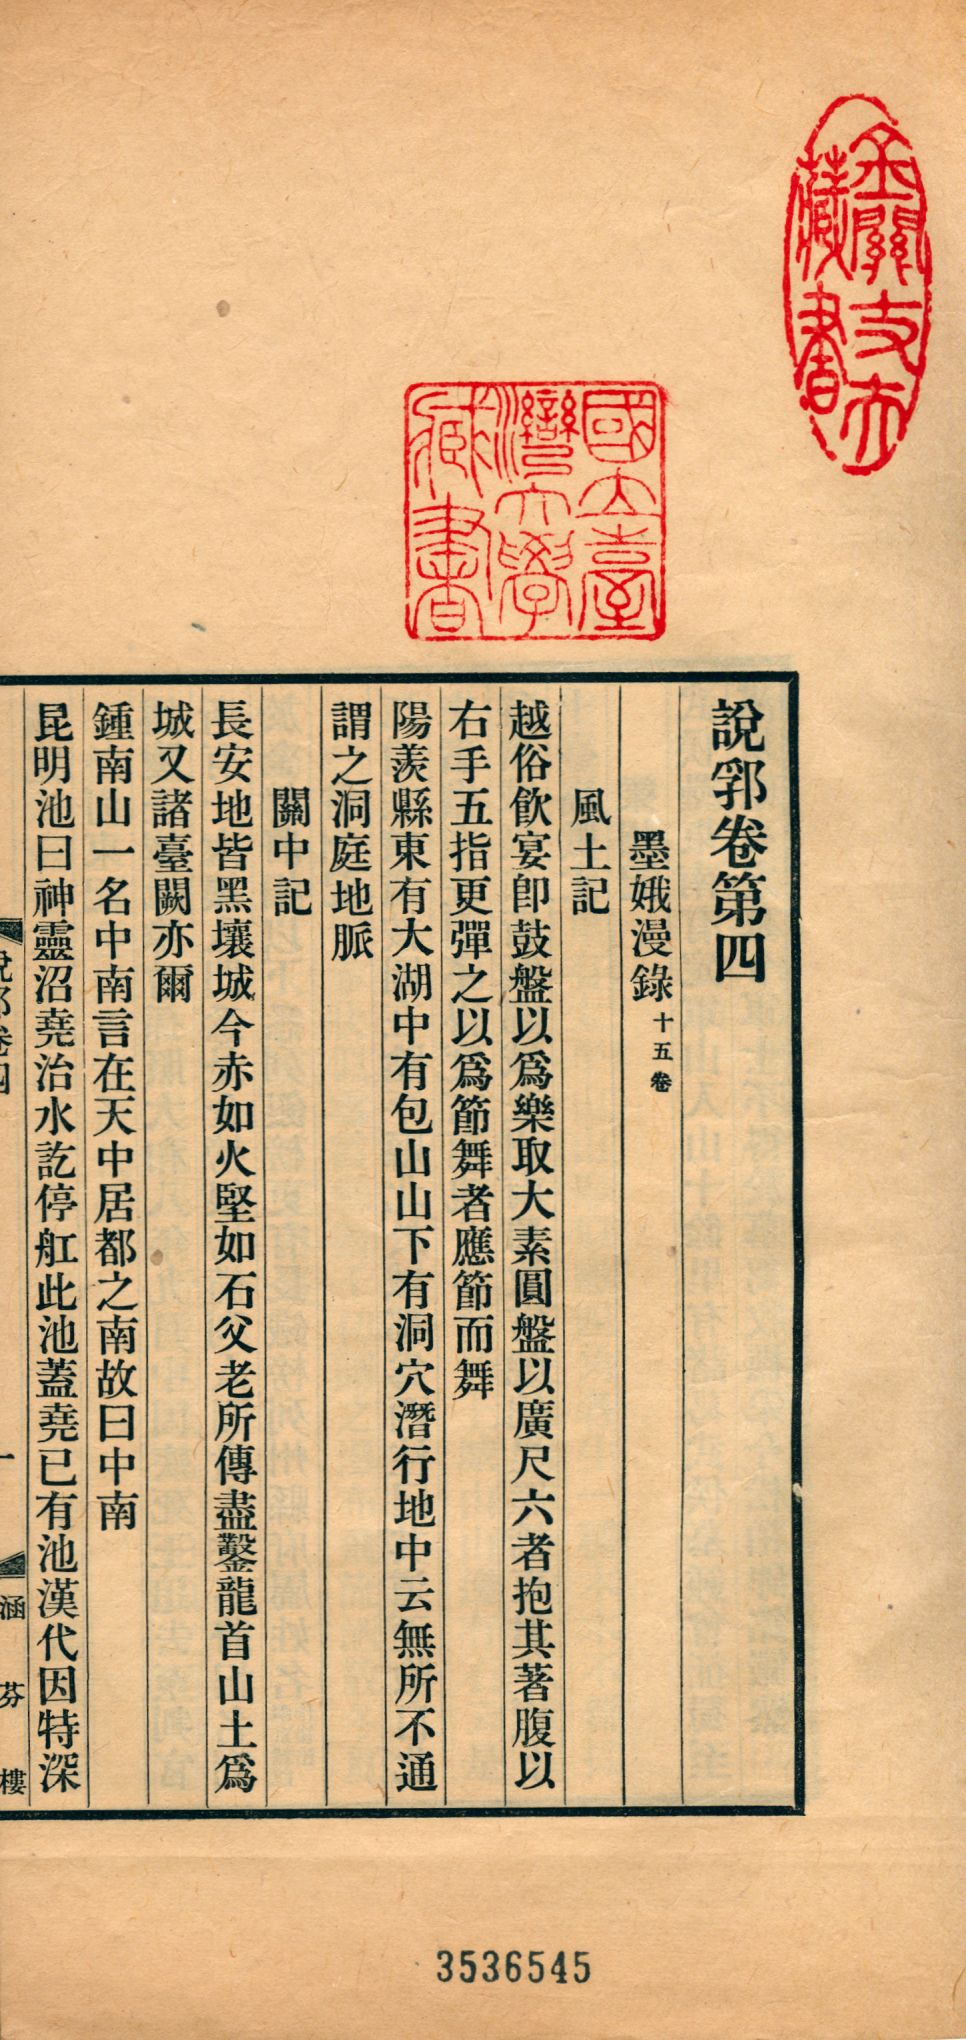 說郛卷第四
墨娥漫錄十五卷
風土記
越俗飮宴卽鼓盤以爲樂取大素圓盤以廣尺六者抱其著腹以
右手五指更彈之以爲節舞者應節而舞
陽羨縣東有大湖中有包山山下有洞穴潛行地中云無所不通
謂之洞庭地脈
關中記
長安地皆黑壤城今赤如火堅如石父老所傳盡鑿龍首山土爲
城又諸臺闕亦爾
鍾南山一名中南言在天中居都之南故曰中南
昆明池曰神靈沼堯治水訖停舡此池蓋堯已有池漢代因特深
說郛卷四
一
涵芬樓
國立臺
灣大學
藏書
藏書
3536545